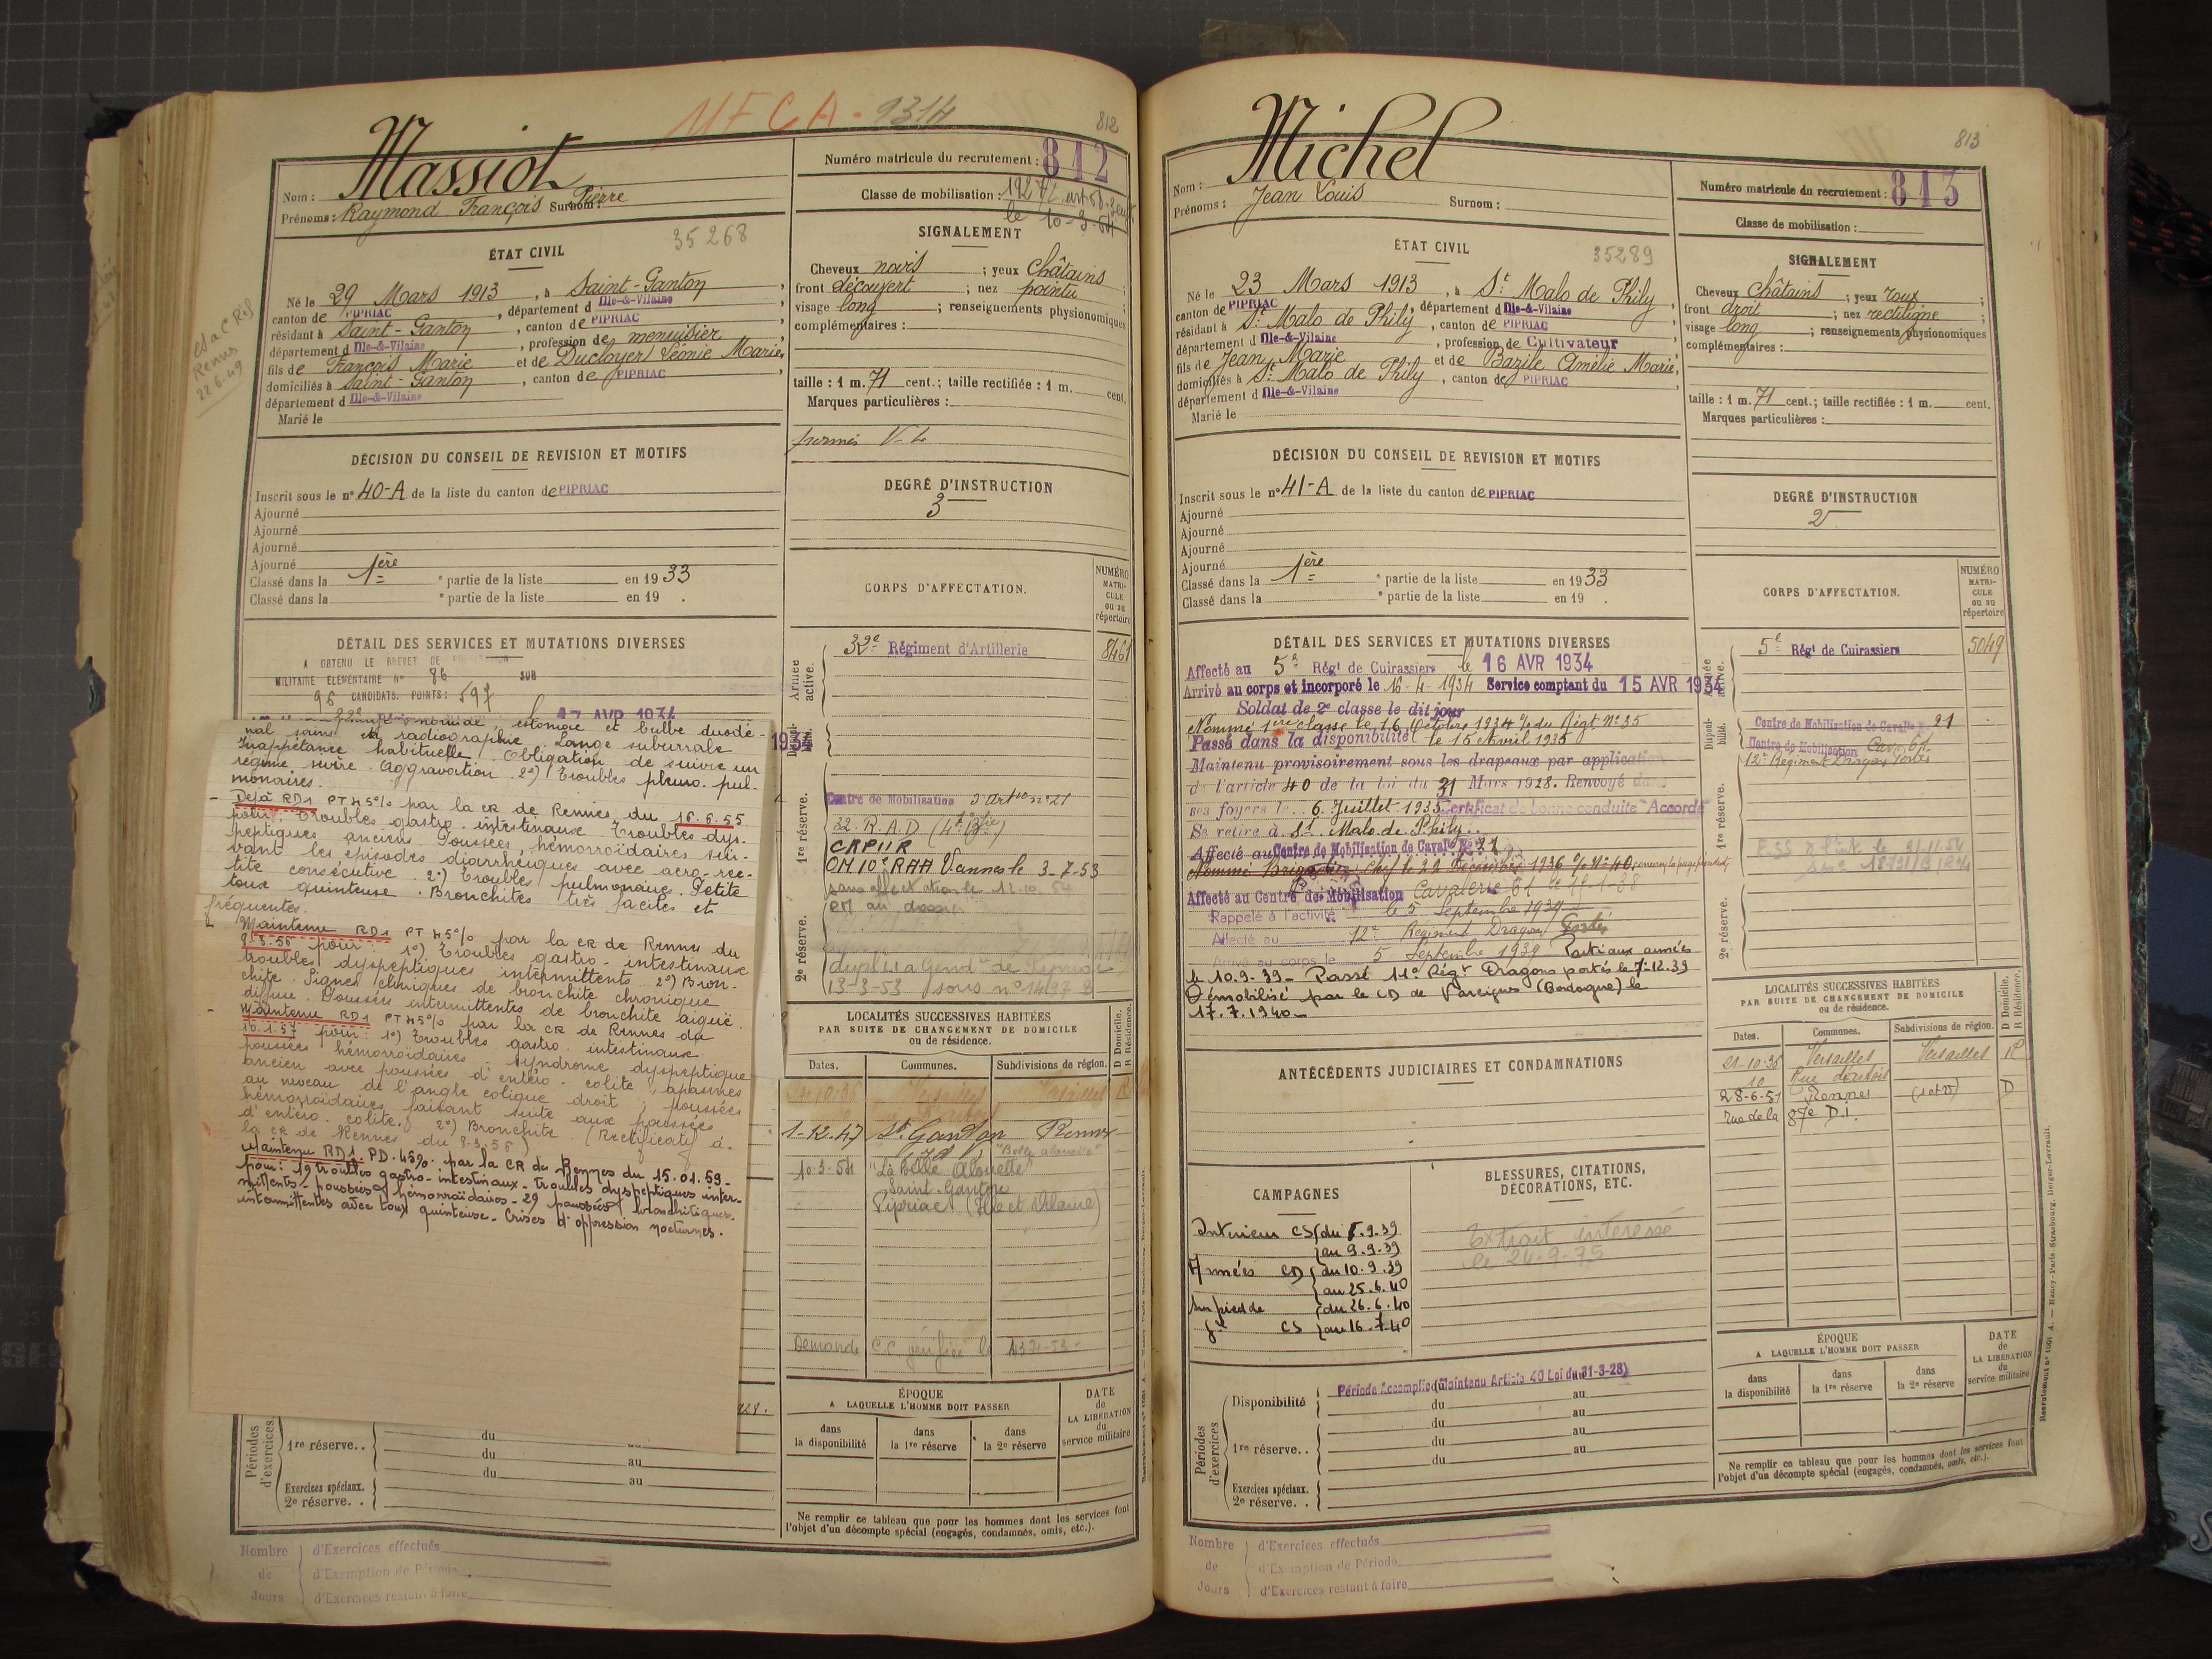 MFCA - 9314
812
Massiot
Nom :
Prénoms : Raymond François Pierre Surnom :
35268
Numéro matricule du recrutement : 812
Classe de mobilisation :
le 10-3-54
ÉTAT CIVIL
Né le 29 Mars 1913, à Saint-Ganton,
canton de PIPRIAC, département d Ille-&-Vilaine
résidant à Saint-Ganton, canton de PIPRIAC
département d Ille-&-Vilaine, profession de menuisier
fils de François Marie et de Ducloyer Léonie Marie,
domiciliés à Saint-Ganton, canton de PIPRIAC
département d Ille-&-Vilaine
Marié le
Rennes
22-6-49
SIGNALEMENT
Cheveux noirs ; yeux châtains
front découvert ; nez pointu
visage long ; renseignements physionomiques
complémentaires :
taille : 1 m. 71 cent.; taille rectifiée : 1 m. cent.
Marques particulières :
permis V-L
DÉCISION DU CONSEIL DE REVISION ET MOTIFS
Inscrit sous le n° 40-A de la liste du canton de PIPRIAC
Ajourné
Ajourné
Ajourné
Ajourné
Classé dans la 1ère partie de la liste en 1933
Classé dans la partie de la liste en 19 .
DEGRÉ D'INSTRUCTION
3
CORPS D'AFFECTATION.
NUMÉRO MATRI- CULE ou au répertoire
DÉTAIL DES SERVICES ET MUTATIONS DIVERSES
A OBTENU LE BREVET DE
MILITAIRE ÉLÉMENTAIRE N° 86 SUR
96 CANDIDATS. POINTS : 597
17 AVR 1934
normale, estomac et bulbe duodé-
nal sains à radiographie. Langue saburrale
Inappétance habituelle. Obligation de suivre un
régime sévère. Aggravation. 2°) Troubles pleuro-pul-
monaires.
- Déjà RD1 PT 45% par la CR de Rennes du 16.6.55
pour : Troubles gastro-intestinaux. Troubles dys-
peptiques anciens. Poussées hémorroïdaires sui-
vant les épisodes diarrhéiques avec ano-rec-
tite consécutive. 2°) Troubles pulmonaires. Petite
toux quinteuse. Bronchites très faciles et
fréquentes.
- Maintenu RD1 PT 45% par la CR de Rennes du
8.3.56 pour : 1°) Troubles gastro-intestinaux
troubles dyspeptiques intermittents. 2°) Bron-
chite. Signes cliniques de bronchite chronique
diffuse. Poussées intermittentes de bronchite aiguë.
- Maintenu RD1 PT 45% par la CR de Rennes du
10.1.57 pour : 1°) Troubles gastro-intestinaux
poussées hémorroïdaires. Syndrome dyspeptique
ancien avec poussées d'entéro-colite, spasmes
au niveau de l'angle colique droit ; poussées
hémorroïdaires faisant suite aux poussées
d'entéro-colite. 2°) Bronchite. (Rectificatif à
la CR de Rennes du 8.3.56)
Maintenu RD1. PD. 45% par la CR de Rennes du 15.01.59.
pour : 1°) troubles gastro-intestinaux - troubles dyspeptiques inter-
mittents - poussées hémorroïdaires - 2°) poussées bronchitiques
intermittentes avec toux quinteuse. Crises d'oppression nocturnes.
Armée active.
32e Régiment d'Artillerie 8461
Disponi- bilité.
1re réserve.
Centre de Mobilisation d'Artie n°21
32. R.A.D (4e Bie)
CRPIIR
OM 10e RAA Vannes le 3-7-53
sans affectation le 12-10-54
2e réserve.
13-3-53 sous n° 1497
LOCALITÉS SUCCESSIVES HABITÉES
PAR SUITE DE CHANGEMENT DE DOMICILE
ou de résidence.
D Domicile. R Résidence.
Dates. Communes. Subdivisions de région.
Versailles Versailles R
1-12-47 St Ganton Rennes
"Belle alouette"
10-3-54 "La belle Alouette"
Saint-Ganton
Pipriac (Ille et Vilaine)
Demande C.C. vérifiée le
ÉPOQUE
A LAQUELLE L'HOMME DOIT PASSER
dans la disponibilité dans la 1re réserve dans la 2e réserve
DATE de LA LIBÉRATION du service militaire
Ne remplir ce tableau que pour les hommes dont les services font
l'objet d'un décompte spécial (engagés, condamnés, omis, etc.).
Périodes d'exercices
1re réserve..
du
du au
du au
Exercices spéciaux.
2e réserve. .
Nombre de Jours
d'Exercices effectués
d'Exemption de Période
d'Exercices restant à faire
813
Michel
Nom :
Prénoms : Jean Louis Surnom :
35289
Numéro matricule du recrutement : 813
Classe de mobilisation :
ÉTAT CIVIL
Né le 23 Mars 1913, à St Malo de Phily,
canton de PIPRIAC, département d Ille-&-Vilaine
résidant à St Malo de Phily, canton de PIPRIAC
département d Ille-&-Vilaine, profession de Cultivateur
fils de Jean Marie et de Bazile Amélie Marie,
domiciliés à St Malo de Phily, canton de PIPRIAC
département d Ille-&-Vilaine
Marié le
SIGNALEMENT
Cheveux châtains ; yeux roux
front droit ; nez rectiligne
visage long ; renseignements physionomiques
complémentaires :
taille : 1 m. 71 cent.; taille rectifiée : 1 m. cent.
Marques particulières :
DÉCISION DU CONSEIL DE REVISION ET MOTIFS
Inscrit sous le n° 41-A de la liste du canton de PIPRIAC
Ajourné
Ajourné
Ajourné
Ajourné
Classé dans la 1ère partie de la liste en 1933
Classé dans la partie de la liste en 19 .
DEGRÉ D'INSTRUCTION
2
CORPS D'AFFECTATION.
NUMÉRO MATRI- CULE ou au répertoire
DÉTAIL DES SERVICES ET MUTATIONS DIVERSES
Affecté au 5e Régt de Cuirassiers le 16 AVR 1934
Arrivé au corps et incorporé le 16-4-1934 Service comptant du 15 AVR 1934
Soldat de 2e classe le dit jour
Nommé 1ère classe le 16 Octobre 1934 O/ du Régt N° 35
Passé dans la disponibilité le 15 Avril 1935
Maintenu provisoirement sous les drapeaux par application
de l'article 40 de la loi du 31 Mars 1928. Renvoyé dans
ses foyers le 6 Juillet 1935 Certificat de bonne conduite "Accordé"
Se retire à St Malo de Phily
Affecté au Centre de Mobilisation de Cavalie N°
Nommé Brigadier Chef le 22 Décembre 1936
Affecté au Centre de Mobilisation Cavalerie 61
Rappelé à l'activité le 5 Septembre 1939
Affecté au 12e Régiment Dragons Portés
Arrivé au corps le 5 Septembre 1939 Parti aux armées
le 10.9.39 - Passé 11e Régt Dragons portés le 7-12-39
Démobilisé par le CD de Vareignes (Dordogne) le
17.7.1940 -
Armée active.
5e Régt de Cuirassiers 5049
Disponi- bilité.
Centre de Mobilisation de Cavalie 21
Centre de Mobilisation Cav. 61
12e Régiment Dragons Portés
1re réserve.
2e réserve.
ANTÉCÉDENTS JUDICIAIRES ET CONDAMNATIONS
LOCALITÉS SUCCESSIVES HABITÉES
PAR SUITE DE CHANGEMENT DE DOMICILE
ou de résidence.
D Domicile. R Résidence.
Dates. Communes. Subdivisions de région.
21-10-36 Versailles Versailles R
10 Rue d'Artois
28-6-51 Rennes D
rue de la 87e D.I.
CAMPAGNES
Intérieur CS du 5.9.39
au 9.9.39
Armées CD du 10.9.39
au 25.6.40
Sur pied de du 26.6.40
gre CS au 16.7.40
BLESSURES, CITATIONS,
DÉCORATIONS, ETC.
Extrait intéressé
le 24-9-75
ÉPOQUE
A LAQUELLE L'HOMME DOIT PASSER
dans la disponibilité dans la 1re réserve dans la 2e réserve
DATE de LA LIBÉRATION du service militaire
Ne remplir ce tableau que pour les hommes dont les services font
l'objet d'un décompte spécial (engagés, condamnés, omis, etc.).
Périodes d'exercices
Disponibilité
Période Accomplie (Maintenu Article 40 Loi du 31-3-28)
du au
du au
1re réserve..
du au
du au
Exercices spéciaux.
2e réserve. .
Nombre de Jours
d'Exercices effectués
d'Exemption de Période
d'Exercices restant à faire
Recrutement n° 1061 A. — Nancy-Paris-Strasbourg, Berger-Levrault.